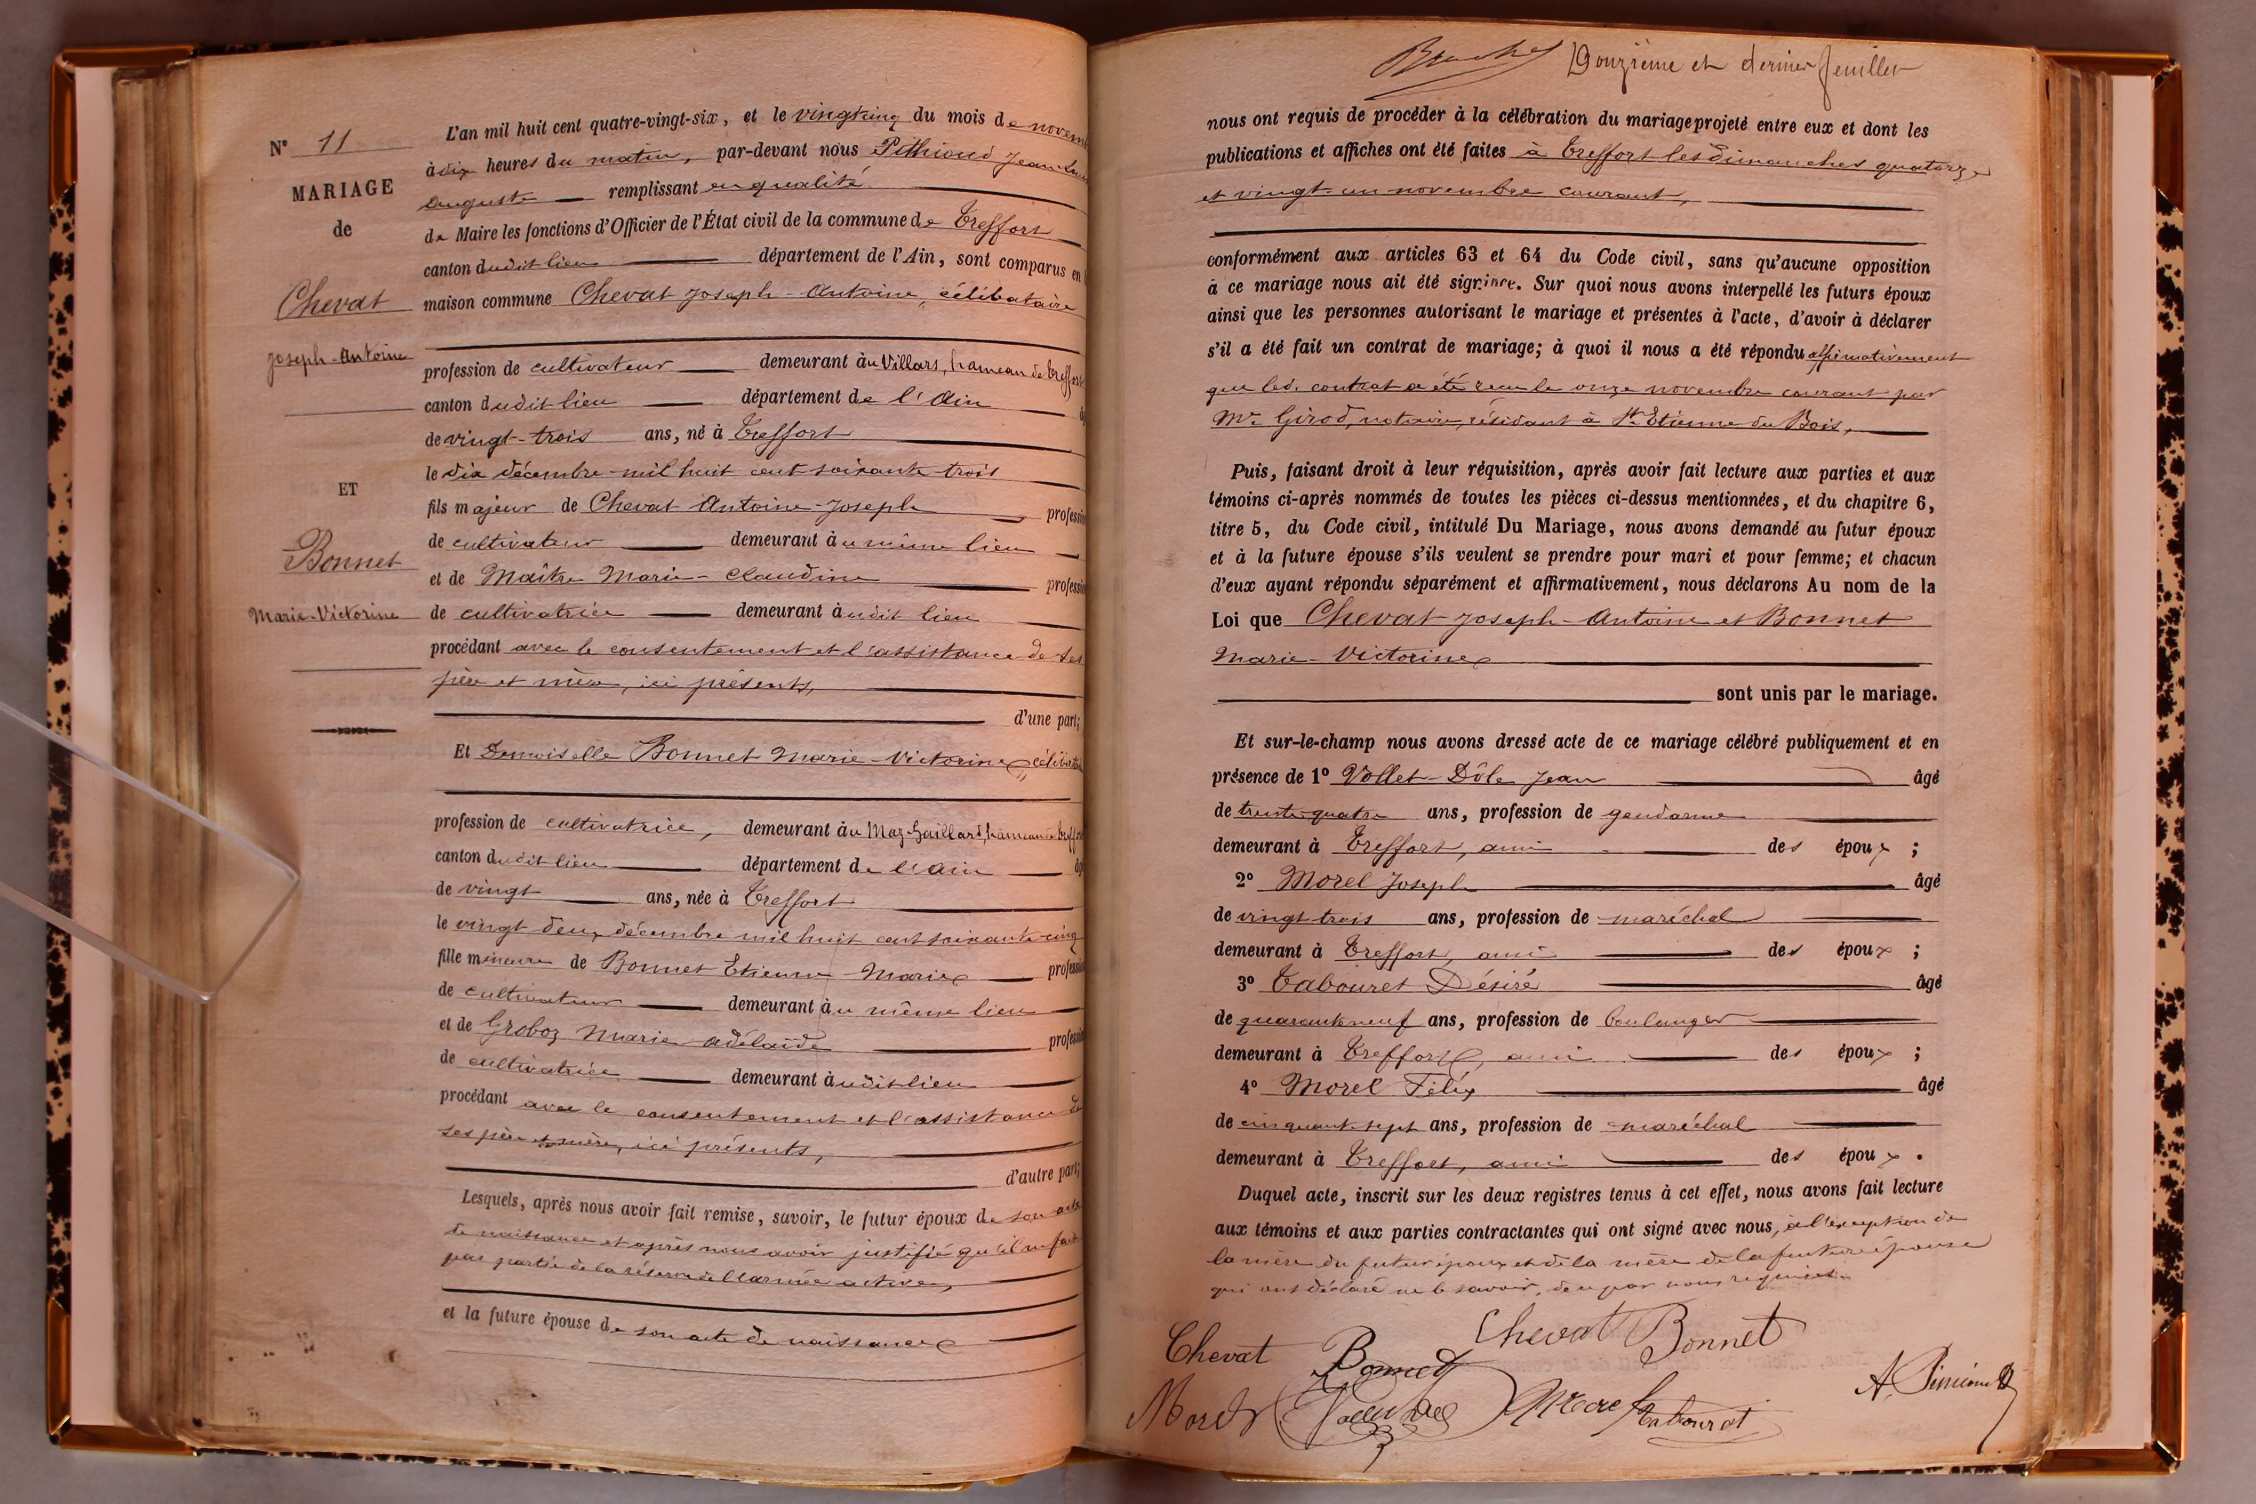 N° 11
MARIAGE
de
Chevat
Joseph-Antoine
ET
Bonnet
Marie-Victorine
L'an mil huit cent quatre-vingt-six, et le vingtcinq du mois de novem
à dix heures du matin, par-devant nous Pithioud Jean-Lou
Auguste remplissant en qualité
de Maire les fonctions d'Officier de l'État civil de la commune de Treffort
canton dudit lieu département de l'Ain, sont comparus en
maison commune Chevat Joseph-Antoine, célibataire
profession de cultivateur demeurant àu Villars, hameau de Treffort
canton dudit lieu département de l'Ain
de vingt-trois ans, né à Treffort
le dix décembre mil huit cent soixante-trois
fils majeur de Chevat Antoine-Joseph profession
de cultivateur demeurant àu même lieu
et de Maître Marie-Claudine profession
de cultivatrice demeurant àudit lieu
procédant avec le consentement et l'assistance de ses
père et mère, ici présents,
d'une part;
Et Demoiselle Bonnet Marie-Victorine, célibat
profession de cultivatrice, demeurant àu Maz-Gaillard, hameau de Treffort
canton dudit lieu département de l'Ain âg
de vingt ans, née à Treffort
le vingt deux décembre mil huit cent soixante-cinq
fille mineure de Bonnet Etienne-Marie profession
de cultivateur demeurant àu même lieu
et de Groboz Marie Adélaïde profession
de cultivatrice demeurant àudit lieu
procédant avec le consentement et l'assistance de
ses père et mère, ici présents,
d'autre part;
Lesquels, après nous avoir fait remise, savoir, le futur époux de son acte
de naissance et après nous avoir justifié qu'il ne fait
pas partie de la réserve de l'armée active,
et la future épouse de son acte de naissance
Douzième et dernier feuillet
nous ont requis de procéder à la célébration du mariage projeté entre eux et dont les
publications et affiches ont été faites à Treffort les dimanches quatorze
et vingt-un novembre courant,
conformément aux articles 63 et 64 du Code civil, sans qu'aucune opposition
à ce mariage nous ait été signifiée. Sur quoi nous avons interpellé les futurs époux
ainsi que les personnes autorisant le mariage et présentes à l'acte, d'avoir à déclarer
s'il a été fait un contrat de mariage; à quoi il nous a été répondu affirmativement
que led. contrat a été reçu le onze novembre courant par
Me Girod, notaire, résidant à St Etienne du Bois,
Puis, faisant droit à leur réquisition, après avoir fait lecture aux parties et aux
témoins ci-après nommés de toutes les pièces ci-dessus mentionnées, et du chapitre 6,
titre 5, du Code civil, intitulé Du Mariage, nous avons demandé au futur époux
et à la future épouse s'ils veulent se prendre pour mari et pour femme; et chacun
d'eux ayant répondu séparément et affirmativement, nous déclarons Au nom de la
Loi que Chevat Joseph-Antoine et Bonnet
Marie-Victorine
sont unis par le mariage.
Et sur-le-champ nous avons dressé acte de ce mariage célébré publiquement et en
présence de 1° Vollet-Dôle Jean âgé
de trente-quatre ans, profession de gendarme
demeurant à Treffort, ami des époux ;
2° Morel Joseph âgé
de vingt trois ans, profession de maréchal
demeurant à Treffort, ami des époux ;
3° Tabouret Désiré âgé
de quarante neuf ans, profession de boulanger
demeurant à Treffort, ami des époux ;
4° Morel Félix âgé
de cinquante-sept ans, profession de maréchal
demeurant à Treffort, ami des époux .
Duquel acte, inscrit sur les deux registres tenus à cet effet, nous avons fait lecture
aux témoins et aux parties contractantes qui ont signé avec nous, à l'exception de
la mère du futur époux et de la mère de la future épouse
qui ont déclaré ne le savoir, de ce par nous requises.
Chevat Bonnet
Chevat Bonnet
Morel Morel Tabouret